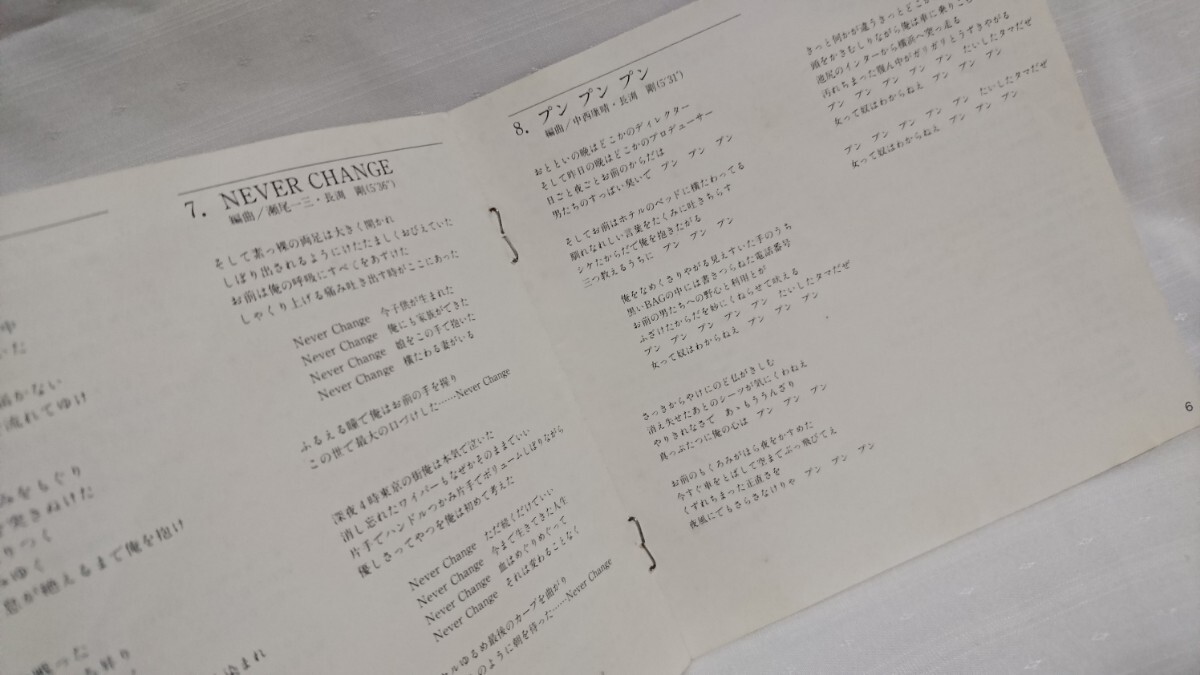 中
いた
届かない
流れてゆけ
みをもぐり
突きぬけた
りつく
ゆく
息が絶えるまで俺を抱け
戦った
染まれ
7. NEVER CHANGE
編曲/瀬尾一三・長渕 剛(5'36")
そして素っ裸の両足は大きく開かれ
しぼり出されるようにけたたましくおびえていた
お前は俺の呼吸にすべてをあずけた
しゃくり上げる痛み吐き出す時がここにあった
Never Change 今子供が生まれた
Never Change 俺にも家族ができた
Never Change 娘をこの手で抱いた
Never Change 横たわる妻がいる
ふるえる瞳で俺はお前の手を握り
この世で最大の口づけした……Never Change
深夜4時東京の街俺は本気で泣いた
消し忘れたワイパーもなぜかそのままでいい
片手でハンドルつかみ片手でボリュームしぼりながら
優しさってやつを俺は初めて考えた
Never Change ただ続くだけでいい
Never Change 今まで生きてきた人生
Never Change 血はめぐりめぐって
Never Change それは変わることなく
ルゆるめ最後のカーブを曲がり
のように朝を待った……Never Change
8. プン プン プン
編曲/中西康晴・長渕 剛(5'31")
おとといの晩はどこかのディレクター
そして昨日の晩はどこかのプロデューサー
日ごと夜ごとお前のからだは
男たちのすっぱい臭いで プン プン プン
そしてお前はホテルのベッドに横たわってる
馴れなれしい言葉をたくみに吐きちらす
シケたからだで俺を抱きたがる
三つ数えるうちに プン プン プン
俺をなめくさりやがる見えすいた手のうち
黒いBAGの中には書きつらねた電話番号
お前の男たちへの野心と利用とが
ふざけたからだを妙にくねらせて吠える
プン プン プン プン プン たいしたタマだぜ
女って奴はわからねえ プン プン プン
さっきからやけにのど仏がきしむ
消え失せたあとのシーツが気にくわねえ
やりきれなさで あゝもううんざり
真っぷたつに俺の心は プン プン プン
お前のもくろみがほら夜をかすめた
今すぐ車をとばして空までぶっ飛びてえ
くずれちまった正直さを
夜風にでもさらさなけりゃ プン プン プン
きっと何かが違うきっとどこか
頭をかきむしりながら俺は車に乗りこ
池尻のインターから横浜へ突っ走る
汚れちまった頸ん中がガリガリとうずきやがる
プン プン プン プン プン たいしたタマだぜ
女って奴はわからねえ プン プン プン
プン プン プン プン プン たいしたタマだぜ
女って奴はわからねえ プン プン プン
6